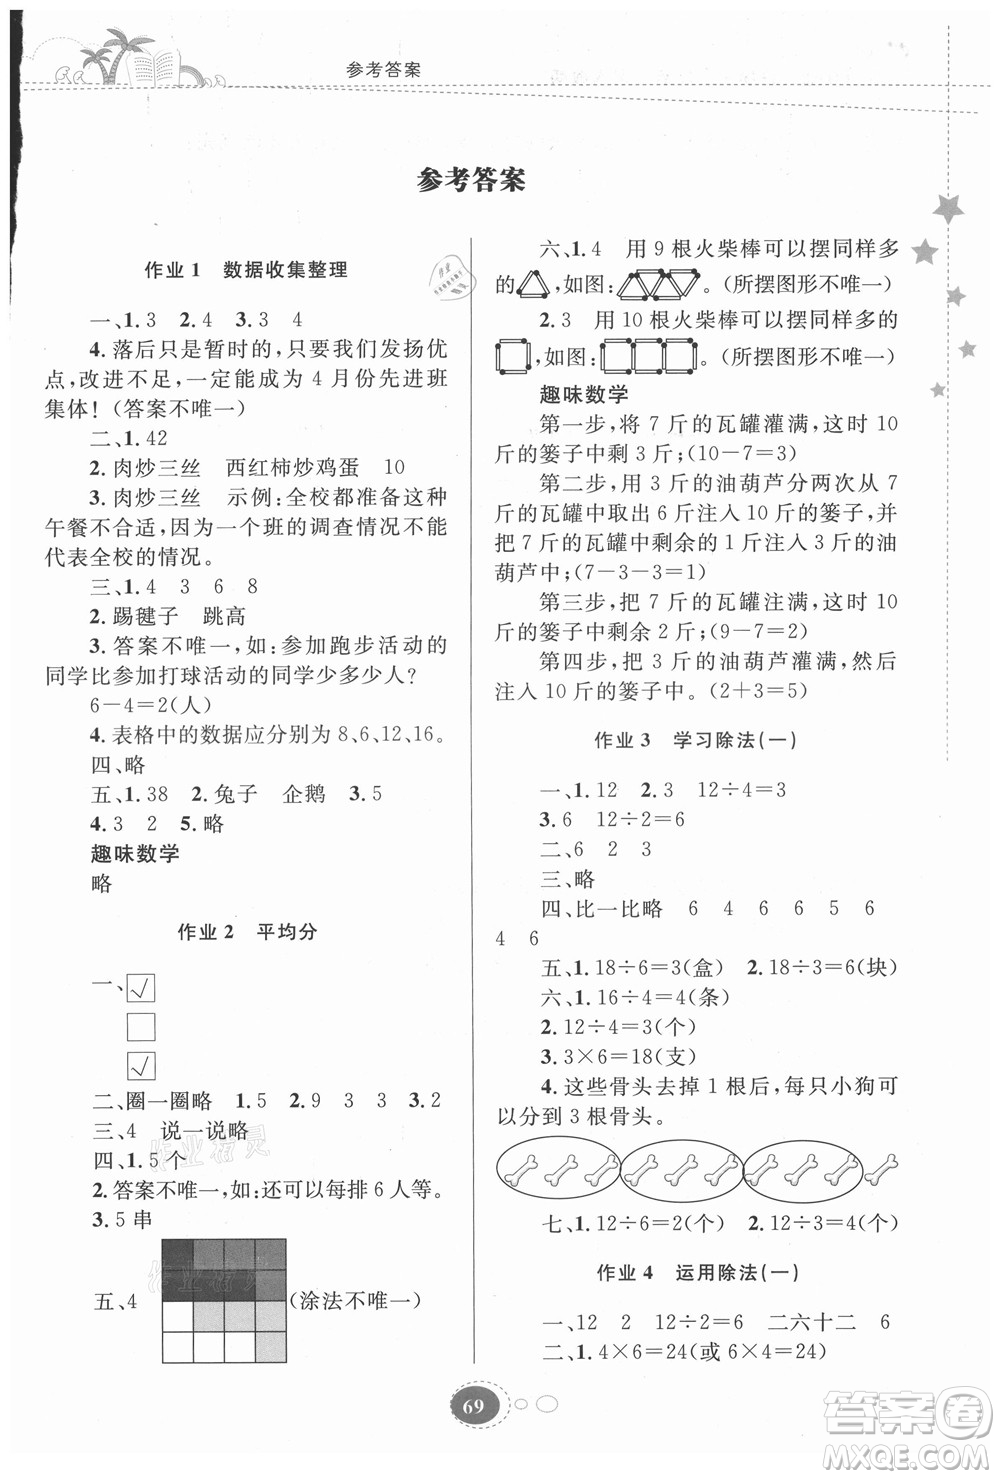 参考答案
参考答案
作业 1 数据收集整理
一、1.3 2.4 3.3 4
4.落后只是暂时的,只要我们发扬优
点,改进不足,一定能成为 4 月份先进班
集体!(答案不唯一)
二、1.42
2.肉炒三丝 西红柿炒鸡蛋 10
3.肉炒三丝 示例:全校都准备这种
午餐不合适,因为一个班的调查情况不能
代表全校的情况。
三、1.4 3 6 8
2.踢毽子 跳高
3.答案不唯一,如:参加跑步活动的
同学比参加打球活动的同学少多少人?
6－4＝2(人)
4.表格中的数据应分别为 8、6、12、16。
四、略
五、1.38 2.兔子 企鹅 3.5
4.3 2 5.略
趣味数学
略
作业 2 平均分
一、√
√
二、圈一圈略 1.5 2.9 3 3 3.2
三、4 说一说略
四、1.5 个
2.答案不唯一,如:还可以每排 6 人等。
3.5 串
五、4 (涂法不唯一)
六、1.4 用 9 根火柴棒可以摆同样多
的 ,如图: 。(所摆图形不唯一)
2.3 用 10 根火柴棒可以摆同样多的
,如图: 。(所摆图形不唯一)
趣味数学
第一步,将 7 斤的瓦罐灌满,这时 10
斤的篓子中剩 3 斤;(10－7＝3)
第二步,用 3 斤的油葫芦分两次从 7
斤的瓦罐中取出 6 斤注入 10 斤的篓子,并
把 7 斤的瓦罐中剩余的 1 斤注入 3 斤的油
葫芦中;(7－3－3＝1)
第三步,把 7 斤的瓦罐注满,这时 10
斤的篓子中剩余 2 斤;(9－7＝2)
第四步,把 3 斤的油葫芦灌满,然后
注入 10 斤的篓子中。(2＋3＝5)
作业 3 学习除法(一)
一、1.12 2.3 12÷4＝3
3.6 12÷2＝6
二、6 2 3
三、略
四、比一比略 6 4 6 6 5 6
4 6
五、1.18÷6＝3(盒) 2.18÷3＝6(块)
六、1.16÷4＝4(条)
2.12÷4＝3(个)
3.3×6＝18(支)
4.这些骨头去掉 1 根后,每只小狗可
以分到 3 根骨头。
七、1.12÷6＝2(个) 2.12÷3＝4(个)
作业 4 运用除法(一)
一、12 2 12÷2＝6 二六十二 6
二、1.4×6＝24(或 6×4＝24)
69
答案卷
MXQE.COM